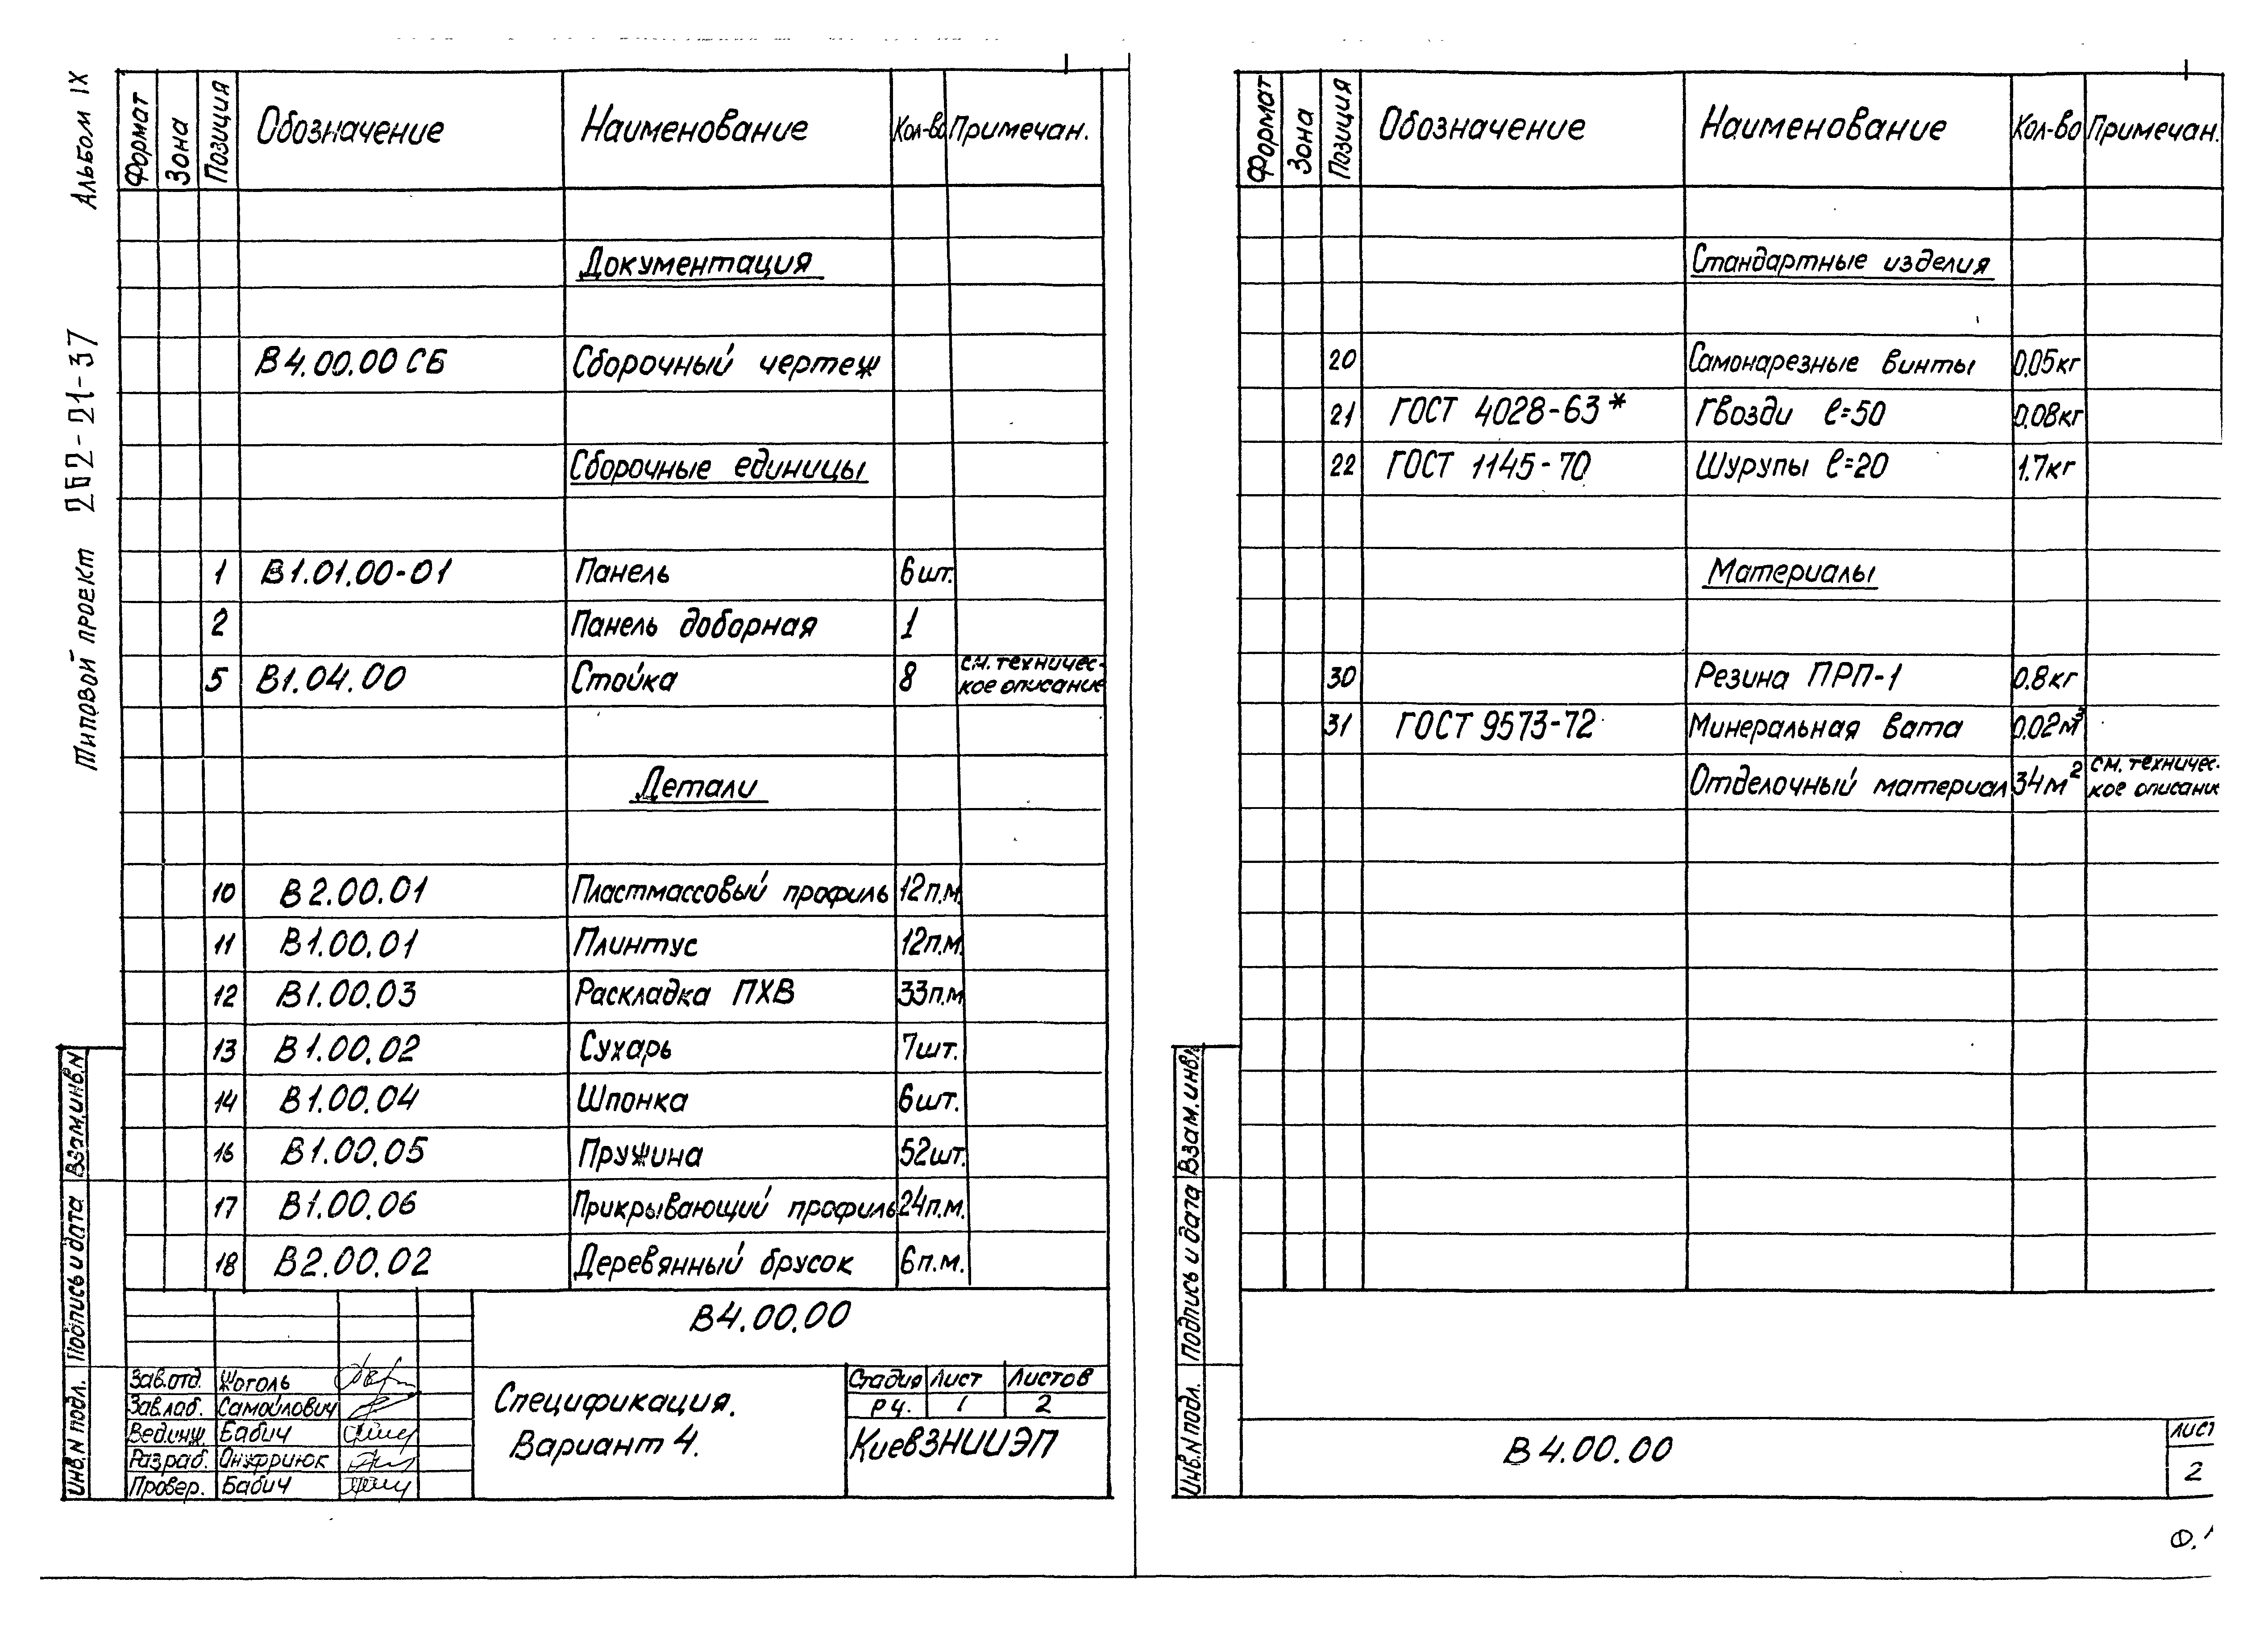 Альбом IX
Типовой проект 262-21-37
Формат Зона Позиция Обозначение Наименование Кол-во Примечан.
Документация
В4.00.00 СБ Сборочный чертеж
Сборочные единицы
1 В1.01.00-01 Панель 6шт.
2 Панель доборная 1
5 В1.04.00 Стойка 8 см. техничес-
кое описание
Детали
10 В2.00.01 Пластмассовый профиль 12п.м.
11 В1.00.01 Плинтус 12п.м.
12 В1.00.03 Раскладка ПХВ 33п.м
13 В1.00.02 Сухарь 7шт.
14 В1.00.04 Шпонка 6шт.
16 В1.00.05 Пружина 52шт.
17 В1.00.06 Прикрывающий профиль 24п.м.
18 В2.00.02 Деревянный брусок 6п.м.
В4.00.00
Зав.отд. Жоголь
Зав.лаб. Самойлович
Вед.инж. Бабич
Разраб. Ануфриюк
Провер. Бабич
Спецификация.
Вариант 4.
Стадия Лист Листов
РЧ. 1 2
КиевЗНИИЭП
Инв.N подл. Подпись и дата Взам.инв.N
Формат Зона Позиция Обозначение Наименование Кол-во Примечан.
Стандартные изделия
20 Самонарезные винты 0,05кг
21 ГОСТ 4028-63* Гвозди ℓ=50 0,08кг
22 ГОСТ 1145-70 Шурупы ℓ=20 1.7кг
Материалы
30 Резина ПРП-1 0.8кг
31 ГОСТ 9573-72 Минеральная вата 0,02м³
Отделочный материал 34м² см. техничес-
кое описани
В4.00.00
Лист
2
Инв.N подл. Подпись и дата Взам.инв.N